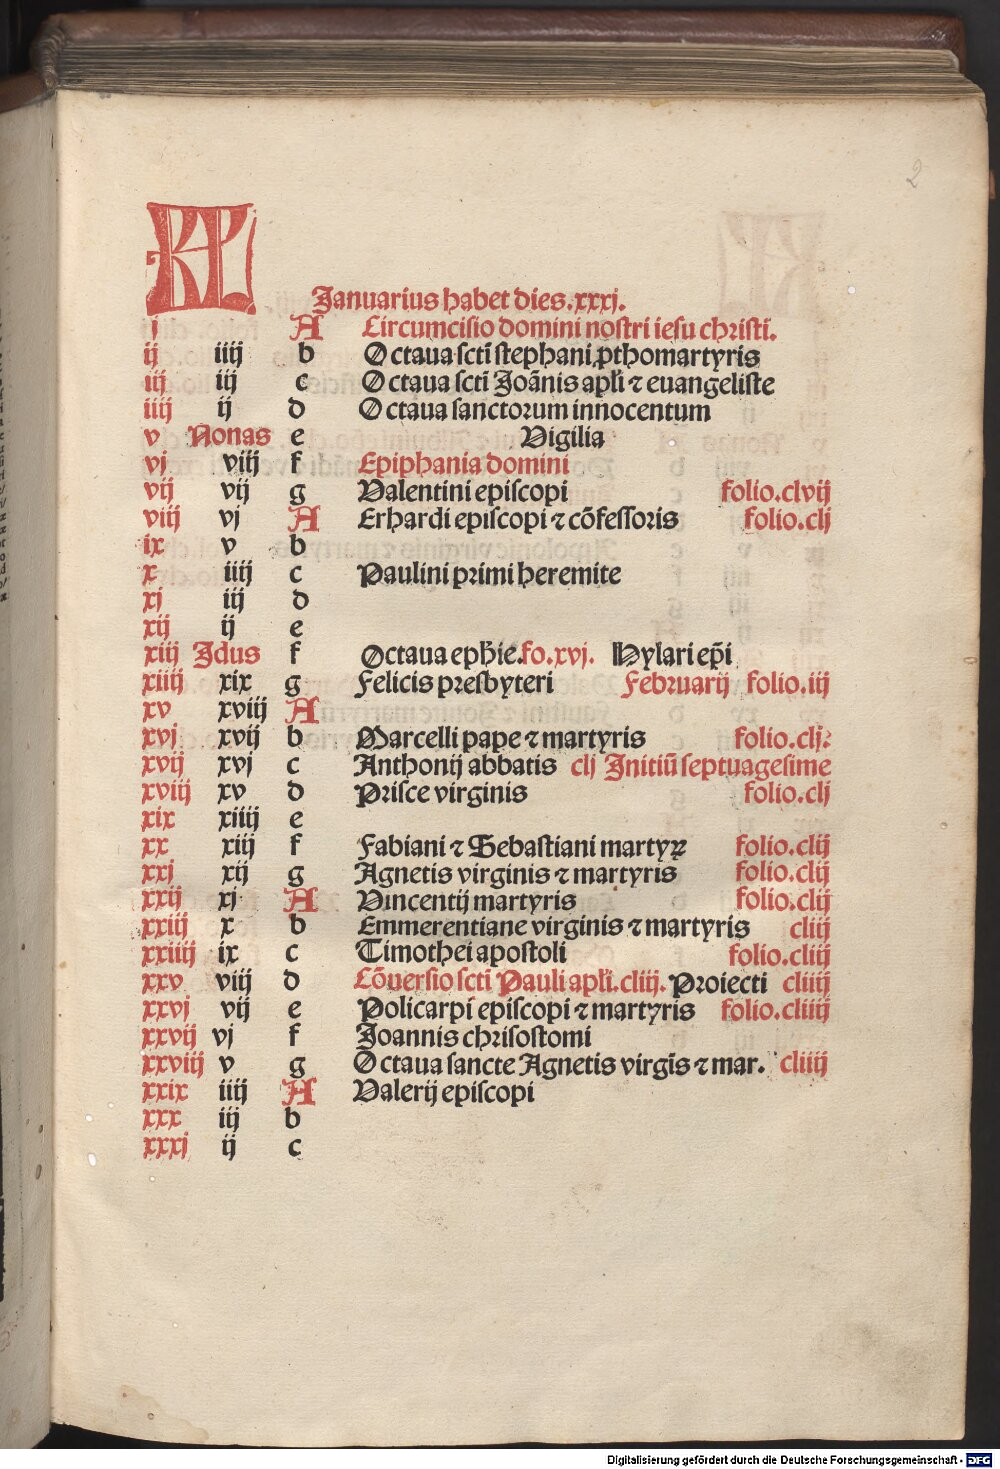 2
KL
Januarius habet dies.xxxj.
j A Circumcisio domini nostri iesu christi.
ij iiij b Octaua sctī stephani ꝓthomartyris
iij iij c Octaua sctī Joānis apl̄i ⁊ euangeliste
iiij ij d Octaua sanctorum innocentum
v Nonas e Vigilia
vj viij f Epiphania domini
vij vij g Valentini episcopi folio.clvij
viij vj A Erhardi episcopi ⁊ cōfessoris folio.clj
ix v b
x iiij c Paulini primi heremite
xj iij d
xij ij e
xiij Jdus f Octaua ephīe.fo.xvj. Hylari ep̄i
xiiij xix g Felicis presbyteri Februarij folio.iij
xv xviij A
xvj xvij b Marcelli pape ⁊ martyris folio.clj.
xvij xvj c Anthonij abbatis clj Jnitiū septuagesime
xviij xv d Prisce virginis folio.clj
xix xiiij e
xx xiij f Fabiani ⁊ Sebastiani martyrꝝ folio.clij
xxj xij g Agnetis virginis ⁊ martyris folio.clij
xxij xj A Vincentij martyris folio.clij
xxiij x b Emmerentiane virginis ⁊ martyris cliij
xxiiij ix c Timothei apostoli folio.cliij
xxv viij d Cōuersio sctī Pauli apl̄i.cliij. Proiecti cliiij
xxvj vij e Policarpi episcopi ⁊ martyris folio.cliiij
xxvij vj f Joannis chrisostomi
xxviij v g Octaua sancte Agnetis virgīs ⁊ mar. cliiij
xxix iiij A Valerij episcopi
xxx iij b
xxxj ij c
Digitalisierung gefördert durch die Deutsche Forschungsgemeinschaft - DFG